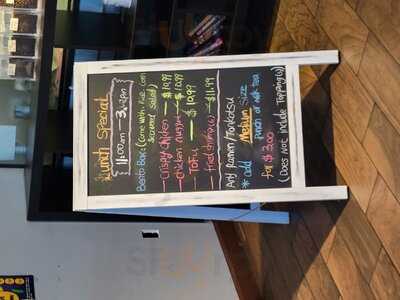 Lunch Special
{ 11:00am - 3:00pm }
Bento Box: (Come with Rice, corn
Seaweed Salad)
- Crispy chicken — $10.99
- chicken — $10.99
- Tofu — $10.99
- fried shrimp(6) — $11.99
Any Ramen/Tonkotsu
* add Medium Size
Lunch of milk Tea
for $3.00
(Does Not Include Topping(s))